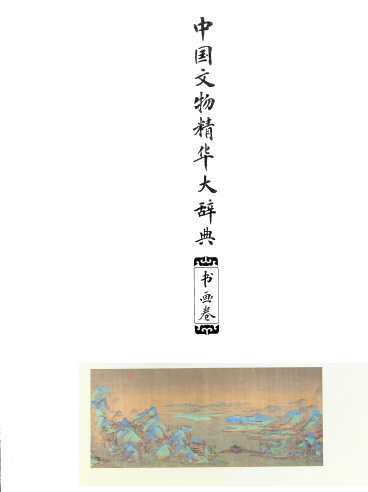 中国文物精华大辞典
书画卷